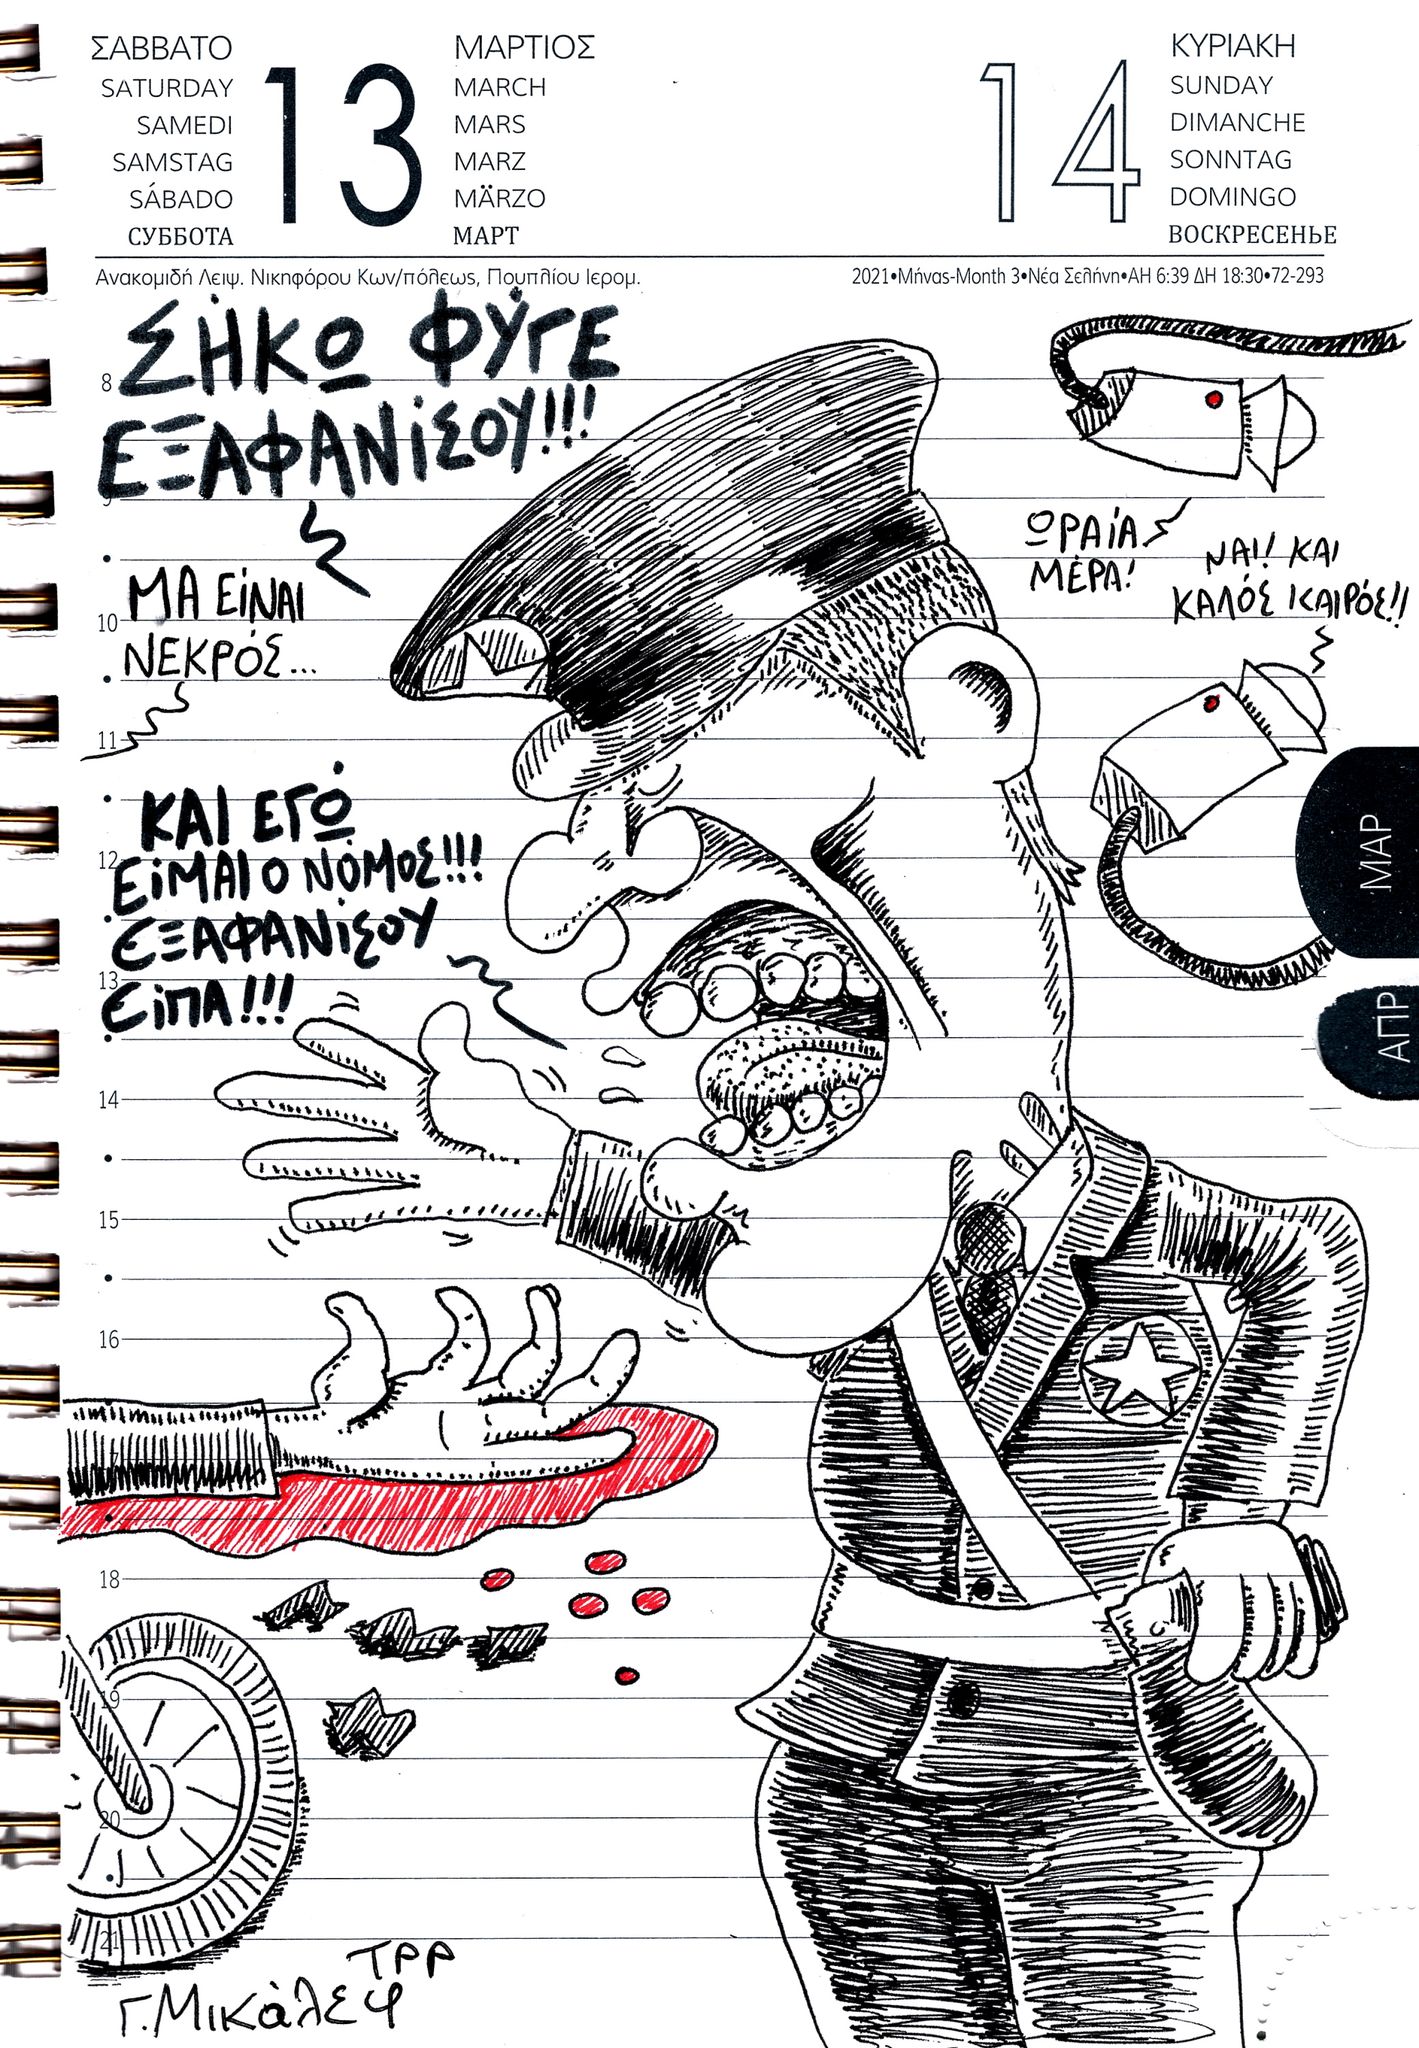 ΣΑΒΒΑΤΟ
SATURDAY
SAMEDI
SAMSTAG
SÁBADO
СУББОТА
13
ΜΑΡΤΙΟΣ
MARCH
MARS
MARZ
MÄRZO
МАРТ
14
ΚΥΡΙΑΚΗ
SUNDAY
DIMANCHE
SONNTAG
DOMINGO
ВОСКРЕСЕНЬЕ
Ανακομιδή Λειψ. Νικηφόρου Κων/πόλεως, Πουπλίου Ιερομ.
2021•Μήνας-Month 3•Νέα Σελήνη•ΑΗ 6:39 ΔΗ 18:30•72-293
ΣΗΚΩ ΦΎΓΕ
ΕΞΑΦΑΝΊΣΟΥ!!!
ΜΑ ΕΊΝΑΙ
ΝΕΚΡΌΣ...
ΩΡΑΊΑ
ΜΈΡΑ!
ΝΑΙ! ΚΑΙ
ΚΑΛΌΣ ΚΑΙΡΌΣ!!
ΚΑΙ ΕΓΏ
ΕΊΜΑΙ Ο ΝΌΜΟΣ!!!
ΕΞΑΦΑΝΊΣΟΥ
ΕΊΠΑ!!!
8
9
10
11
12
13
14
15
16
17
18
19
20
21
ΜΑΡ
ΑΠΡ
ΤΡΡ
Γ. Μικάλεφ